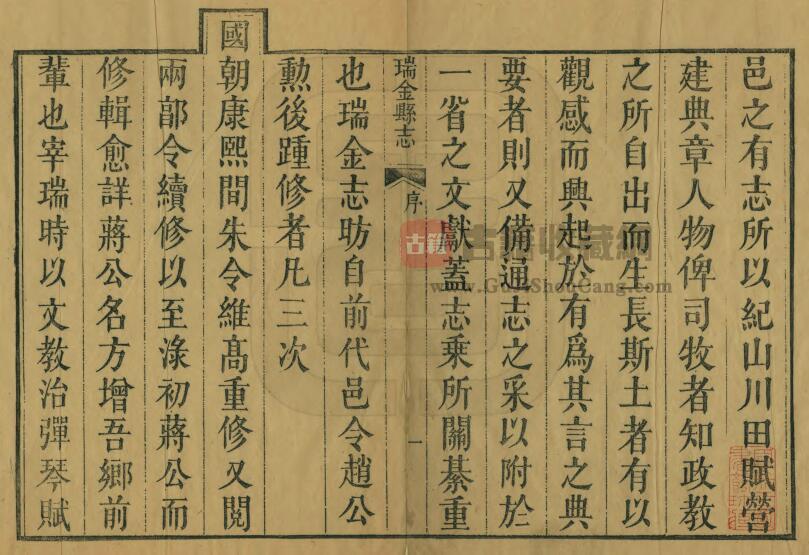 邑之有志所以紀山川田賦營
建典章人物俾司牧者知政教
之所自出而生長斯土者有以
觀感而興起於有爲其言之典
要者則又備通志之采以附於
一省之文獻蓋志乘所關綦重
瑞金縣志
序
一
也瑞金志昉自前代邑令趙公
勲後踵修者凡三次
國
朝康熙間朱令維高重修又閱
兩郭令續修以至淥初蔣公而
修輯愈詳蔣公名方增吾鄉前
輩也宰瑞時以文教治彈琴賦
古籍
古籍收藏網
www.GuJiShouCang.com